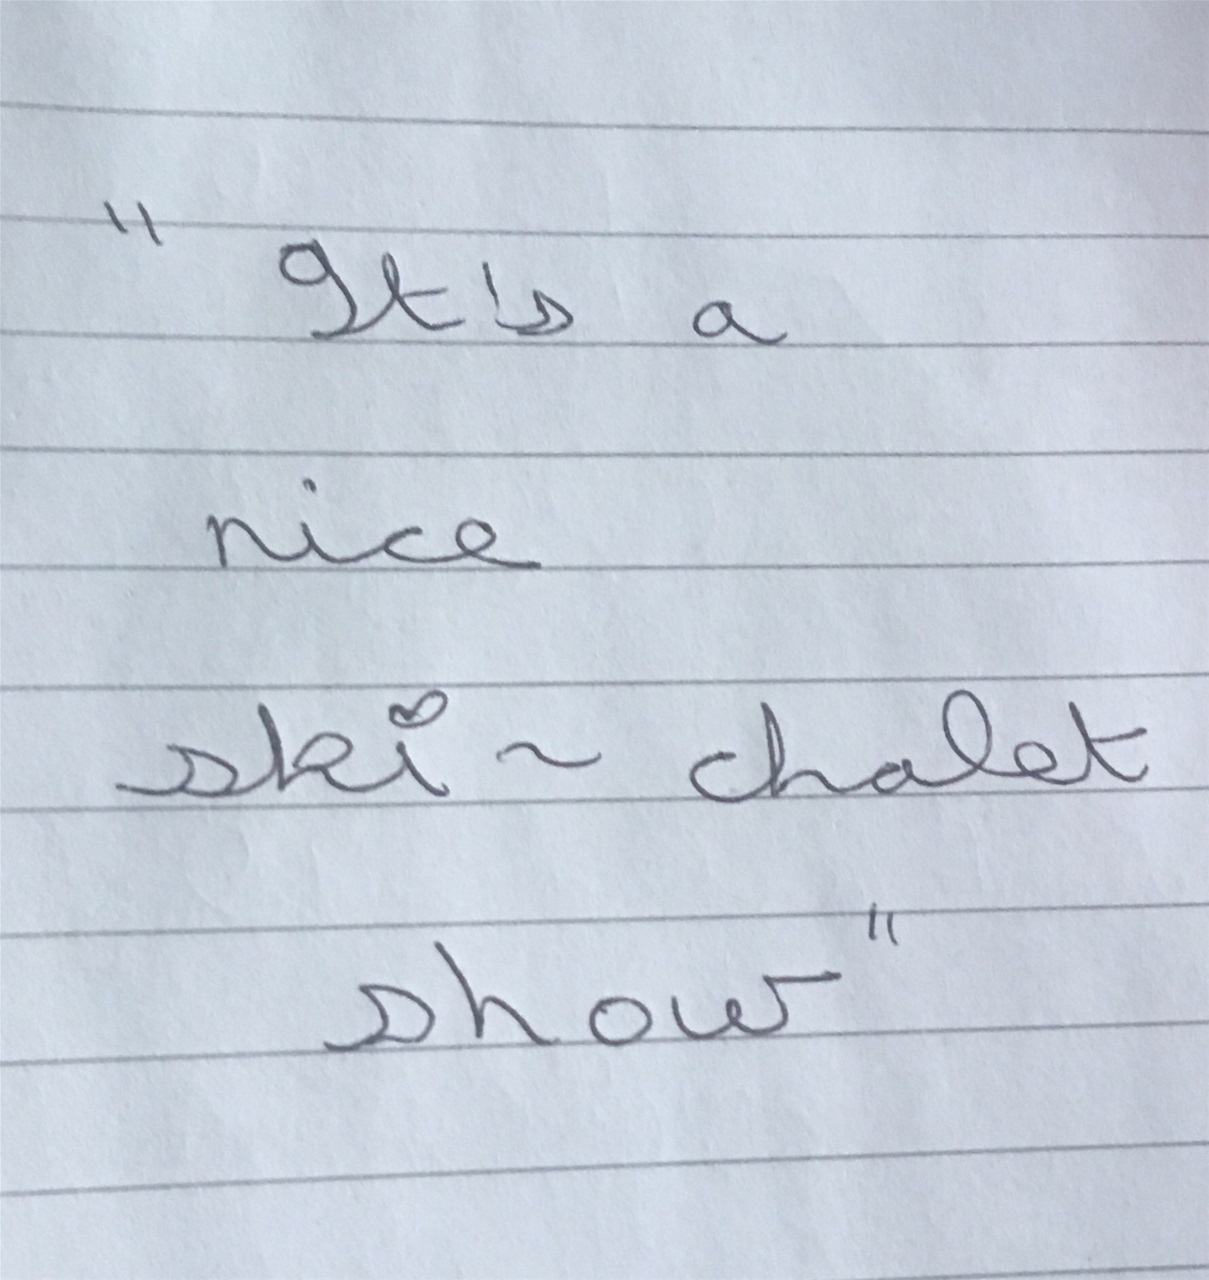 "It's a
nice
ski~chalet
show"